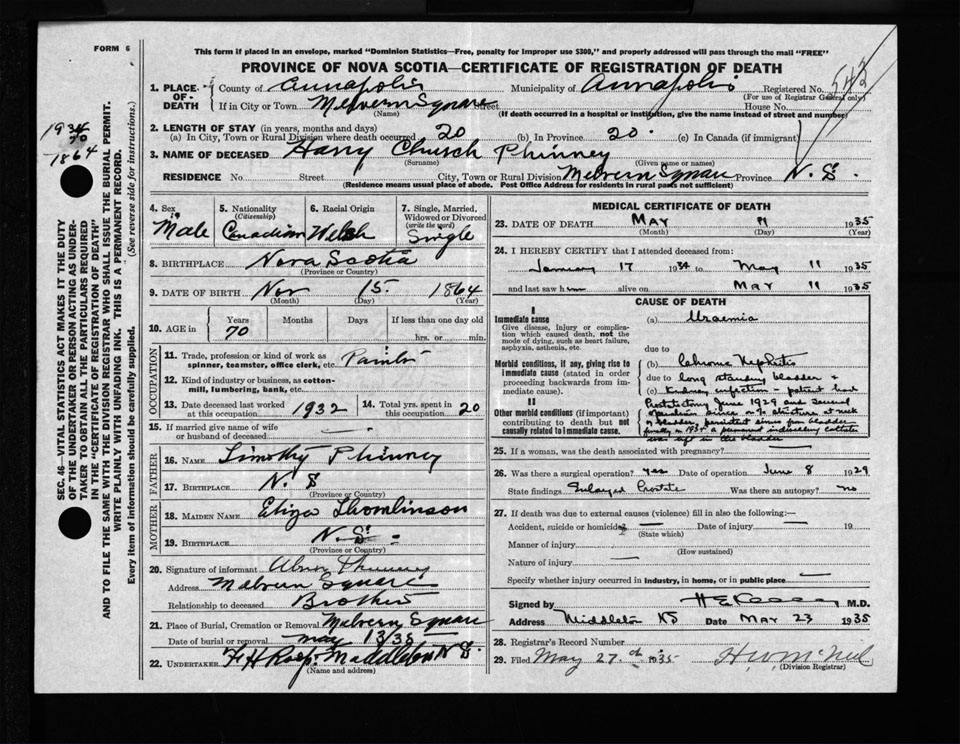 FORM 6
This form if placed in an envelope, marked "Dominion Statistics—Free, penalty for improper use $300," and properly addressed will pass through the mail "FREE"
PROVINCE OF NOVA SCOTIA—CERTIFICATE OF REGISTRATION OF DEATH
543
1. PLACE OF DEATH County of Annapolis Municipality of Annapolis Registered No.
(For use of Registrar General only)
If in City or Town Melvern Square Street House No.
(Name) (If death occurred in a hospital or institution, give the name instead of street and number)
2. LENGTH OF STAY (in years, months and days)
(a) In City, Town or Rural Division where death occurred 20 (b) In Province 20. (c) In Canada (if immigrant)
3. NAME OF DECEASED Harry Church Phinney
(Surname) (Given name or names)
RESIDENCE No. Street City, Town or Rural Division Melvern Square Province N. S.
(Residence means usual place of abode. Post Office Address for residents in rural parts not sufficient)
1935
70
1864
SEC. 46—VITAL STATISTICS ACT MAKES IT THE DUTY
OF THE UNDERTAKER OR PERSON ACTING AS UNDER-
TAKER TO OBTAIN ALL THE PARTICULARS REQUIRED
IN THE "CERTIFICATE OF REGISTRATION OF DEATH"
AND TO FILE THE SAME WITH THE DIVISION REGISTRAR WHO SHALL ISSUE THE BURIAL PERMIT.
WRITE PLAINLY WITH UNFADING INK. THIS IS A PERMANENT RECORD.
Every item of information should be carefully supplied. (See reverse side for instructions.)
4. Sex Male
5. Nationality (Citizenship) Canadian
6. Racial Origin Welsh
7. Single, Married, Widowed or Divorced (write the word) Single
8. BIRTHPLACE Nova Scotia
(Province or Country)
9. DATE OF BIRTH Nov 15 1864
(Month) (Day) (Year)
10. AGE in Years Months Days If less than one day old
70 hrs. or min.
OCCUPATION
11. Trade, profession or kind of work as spinner, teamster, office clerk, etc. Painter
12. Kind of industry or business, as cotton-mill, lumbering, bank, etc.
13. Date deceased last worked at this occupation 1932
14. Total yrs. spent in this occupation 20
15. If married give name of wife or husband of deceased
FATHER
16. NAME Timothy Phinney
17. BIRTHPLACE N. S
(Province or Country)
MOTHER
18. MAIDEN NAME Eliza Thomlinson
19. BIRTHPLACE N. S.
(Province or Country)
20. Signature of informant Phinney
Address Malvern Square
Relationship to deceased Brother
21. Place of Burial, Cremation or Removal Malvern Square
Date of burial or removal May 13/35
22. UNDERTAKER F H Middleton N S.
(Name and address)
MEDICAL CERTIFICATE OF DEATH
23. DATE OF DEATH May 11 1935
(Month) (Day) (Year)
24. I HEREBY CERTIFY that I attended deceased from:
January 17 1934 to May 11 1935
and last saw him alive on May 11 1935
CAUSE OF DEATH
I
Immediate cause
Give disease, injury or complication which caused death, not the mode of dying, such as heart failure, asphyxia, asthenia, etc.
(a) Uraemia
due to
Morbid conditions, if any, giving rise to immediate cause (stated in order proceeding backwards from immediate cause).
(b) Chronic Nephritis
due to long standing bladder &
(c) Kidney infection - patient had
Prostatectomy June 1929 and several
II
Other morbid conditions (if important) contributing to death but not causally related to immediate cause.
operation since or to stricture at neck
of bladder persistent sinus from bladder
finally in 1934 a permanent indwelling catheter
was left in the bladder
25. If a woman, was the death associated with pregnancy?
26. Was there a surgical operation? yes Date of operation June 8 1929
State findings Enlarged Prostate Was there an autopsy? no
27. If death was due to external causes (violence) fill in also the following:—
Accident, suicide or homicide? Date of injury 19
(State which)
Manner of injury
(How sustained)
Nature of injury
Specify whether injury occurred in industry, in home, or in public place
Signed by M.D.
Address Middleton NS Date May 23 1935
28. Registrar's Record Number
29. Filed May 27 th 1935 H. W. McNeil
(Division Registrar)